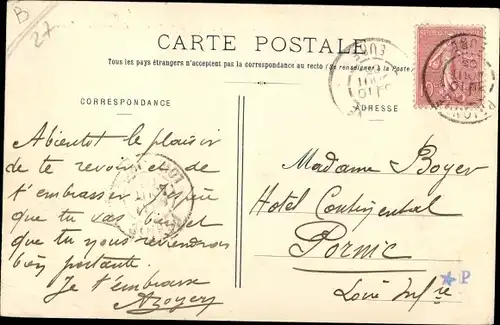 B
27
CARTE POSTALE
Tous les pays étrangers n'acceptent pas la correspondance au recto (Se renseigner à la Poste)
CORRESPONDANCE
ADRESSE
A bientôt le plaisir
de te revoir et de
t'embrasser
que tu vas bien et
que tu nous reviendras
bien portante.
Je t'embrasse
ABoyer
Madame Boyer
Hotel Continental
Pornic
Loire Infre
P